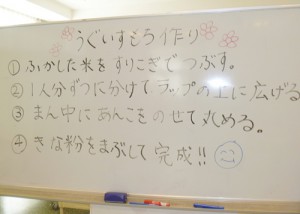 うぐいすもち作り
①ふかした米をすりこぎでつぶす。
②1人分ずつに分けてラップの上に広げる
③まん中にあんこをのせて丸める。
④きな粉をまぶして完成!!